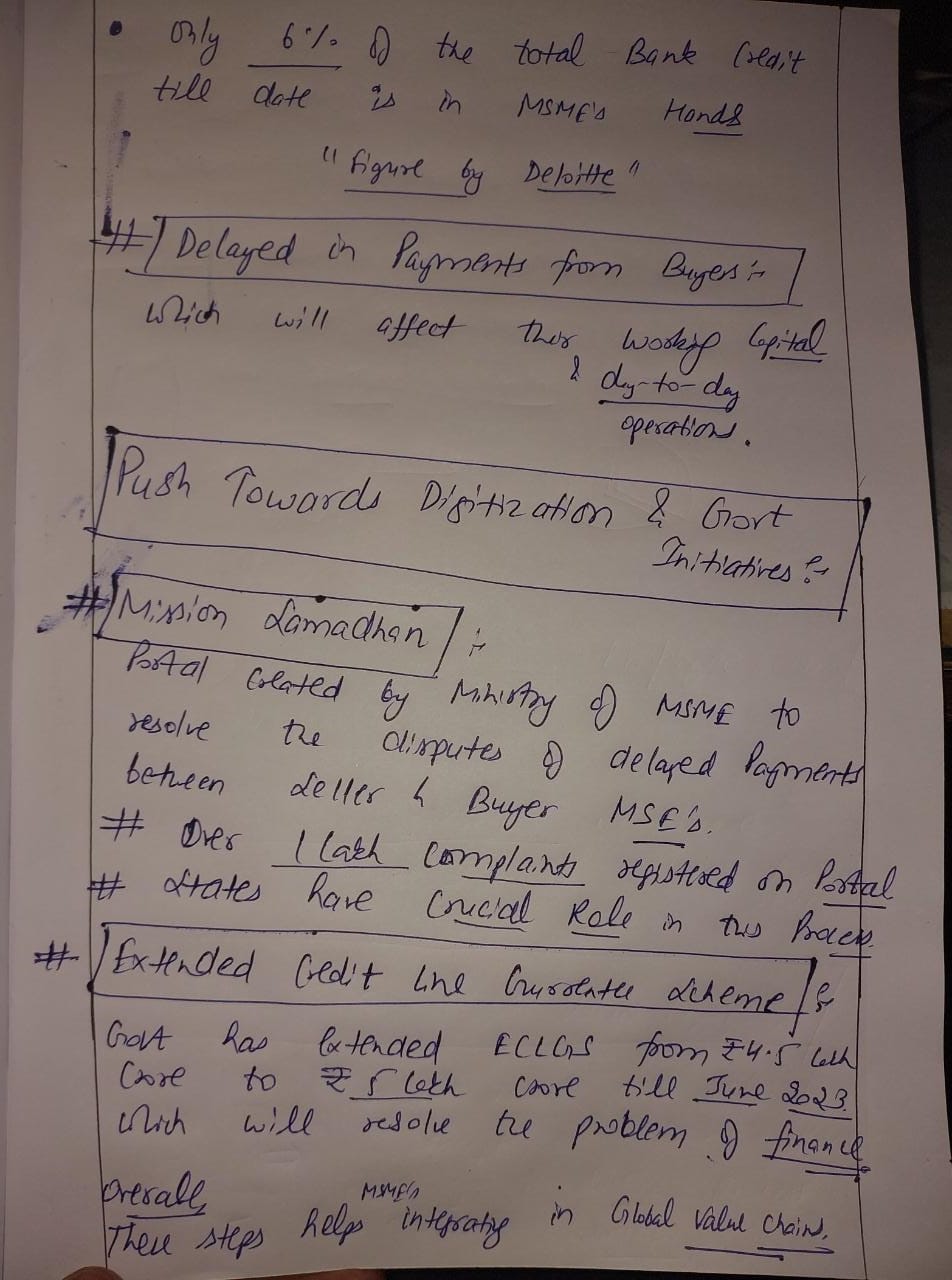 • Only 6% of the total Bank Credit
till date is in MSME's Hands
"Figure by Deloitte"
# Delayed in Payments from Buyers :-
Which will affect their working Capital
& day-to-day
operations.
Push Towards Digitization & Govt
Initiatives :-
# Mission Samadhan :-
Portal created by Ministry of MSME to
resolve the disputes of delayed Payments
between Seller & Buyer MSE's.
# Over 1 lakh complaints registered on Portal
# States have Crucial Role in this Process.
# Extended Credit Line Gurrentee Scheme :-
Govt has Extended ECLGS from ₹4.5 lakh
Crore to ₹5 lakh crore till June 2023.
Which will resolve the problem of finance.
Overall,
These steps helps MSME's integrating in Global Value Chains.